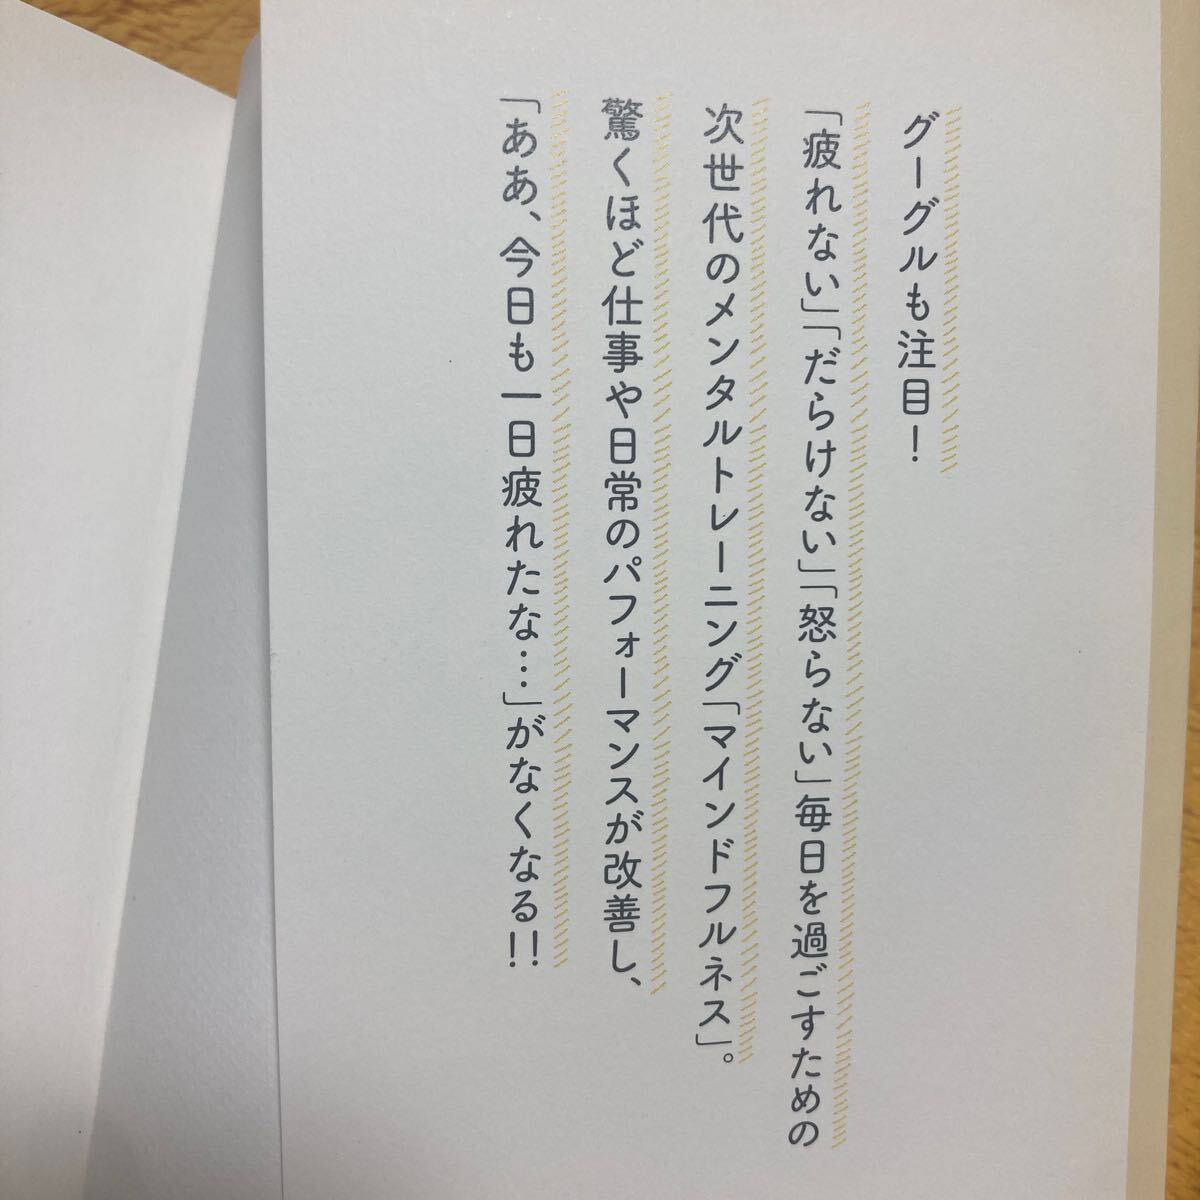 グーグルも注目！
「疲れない」「だらけない」「怒らない」毎日を過ごすための
次世代のメンタルトレーニング「マインドフルネス」。
驚くほど仕事や日常のパフォーマンスが改善し、
「ああ、今日も一日疲れたな…」がなくなる!!